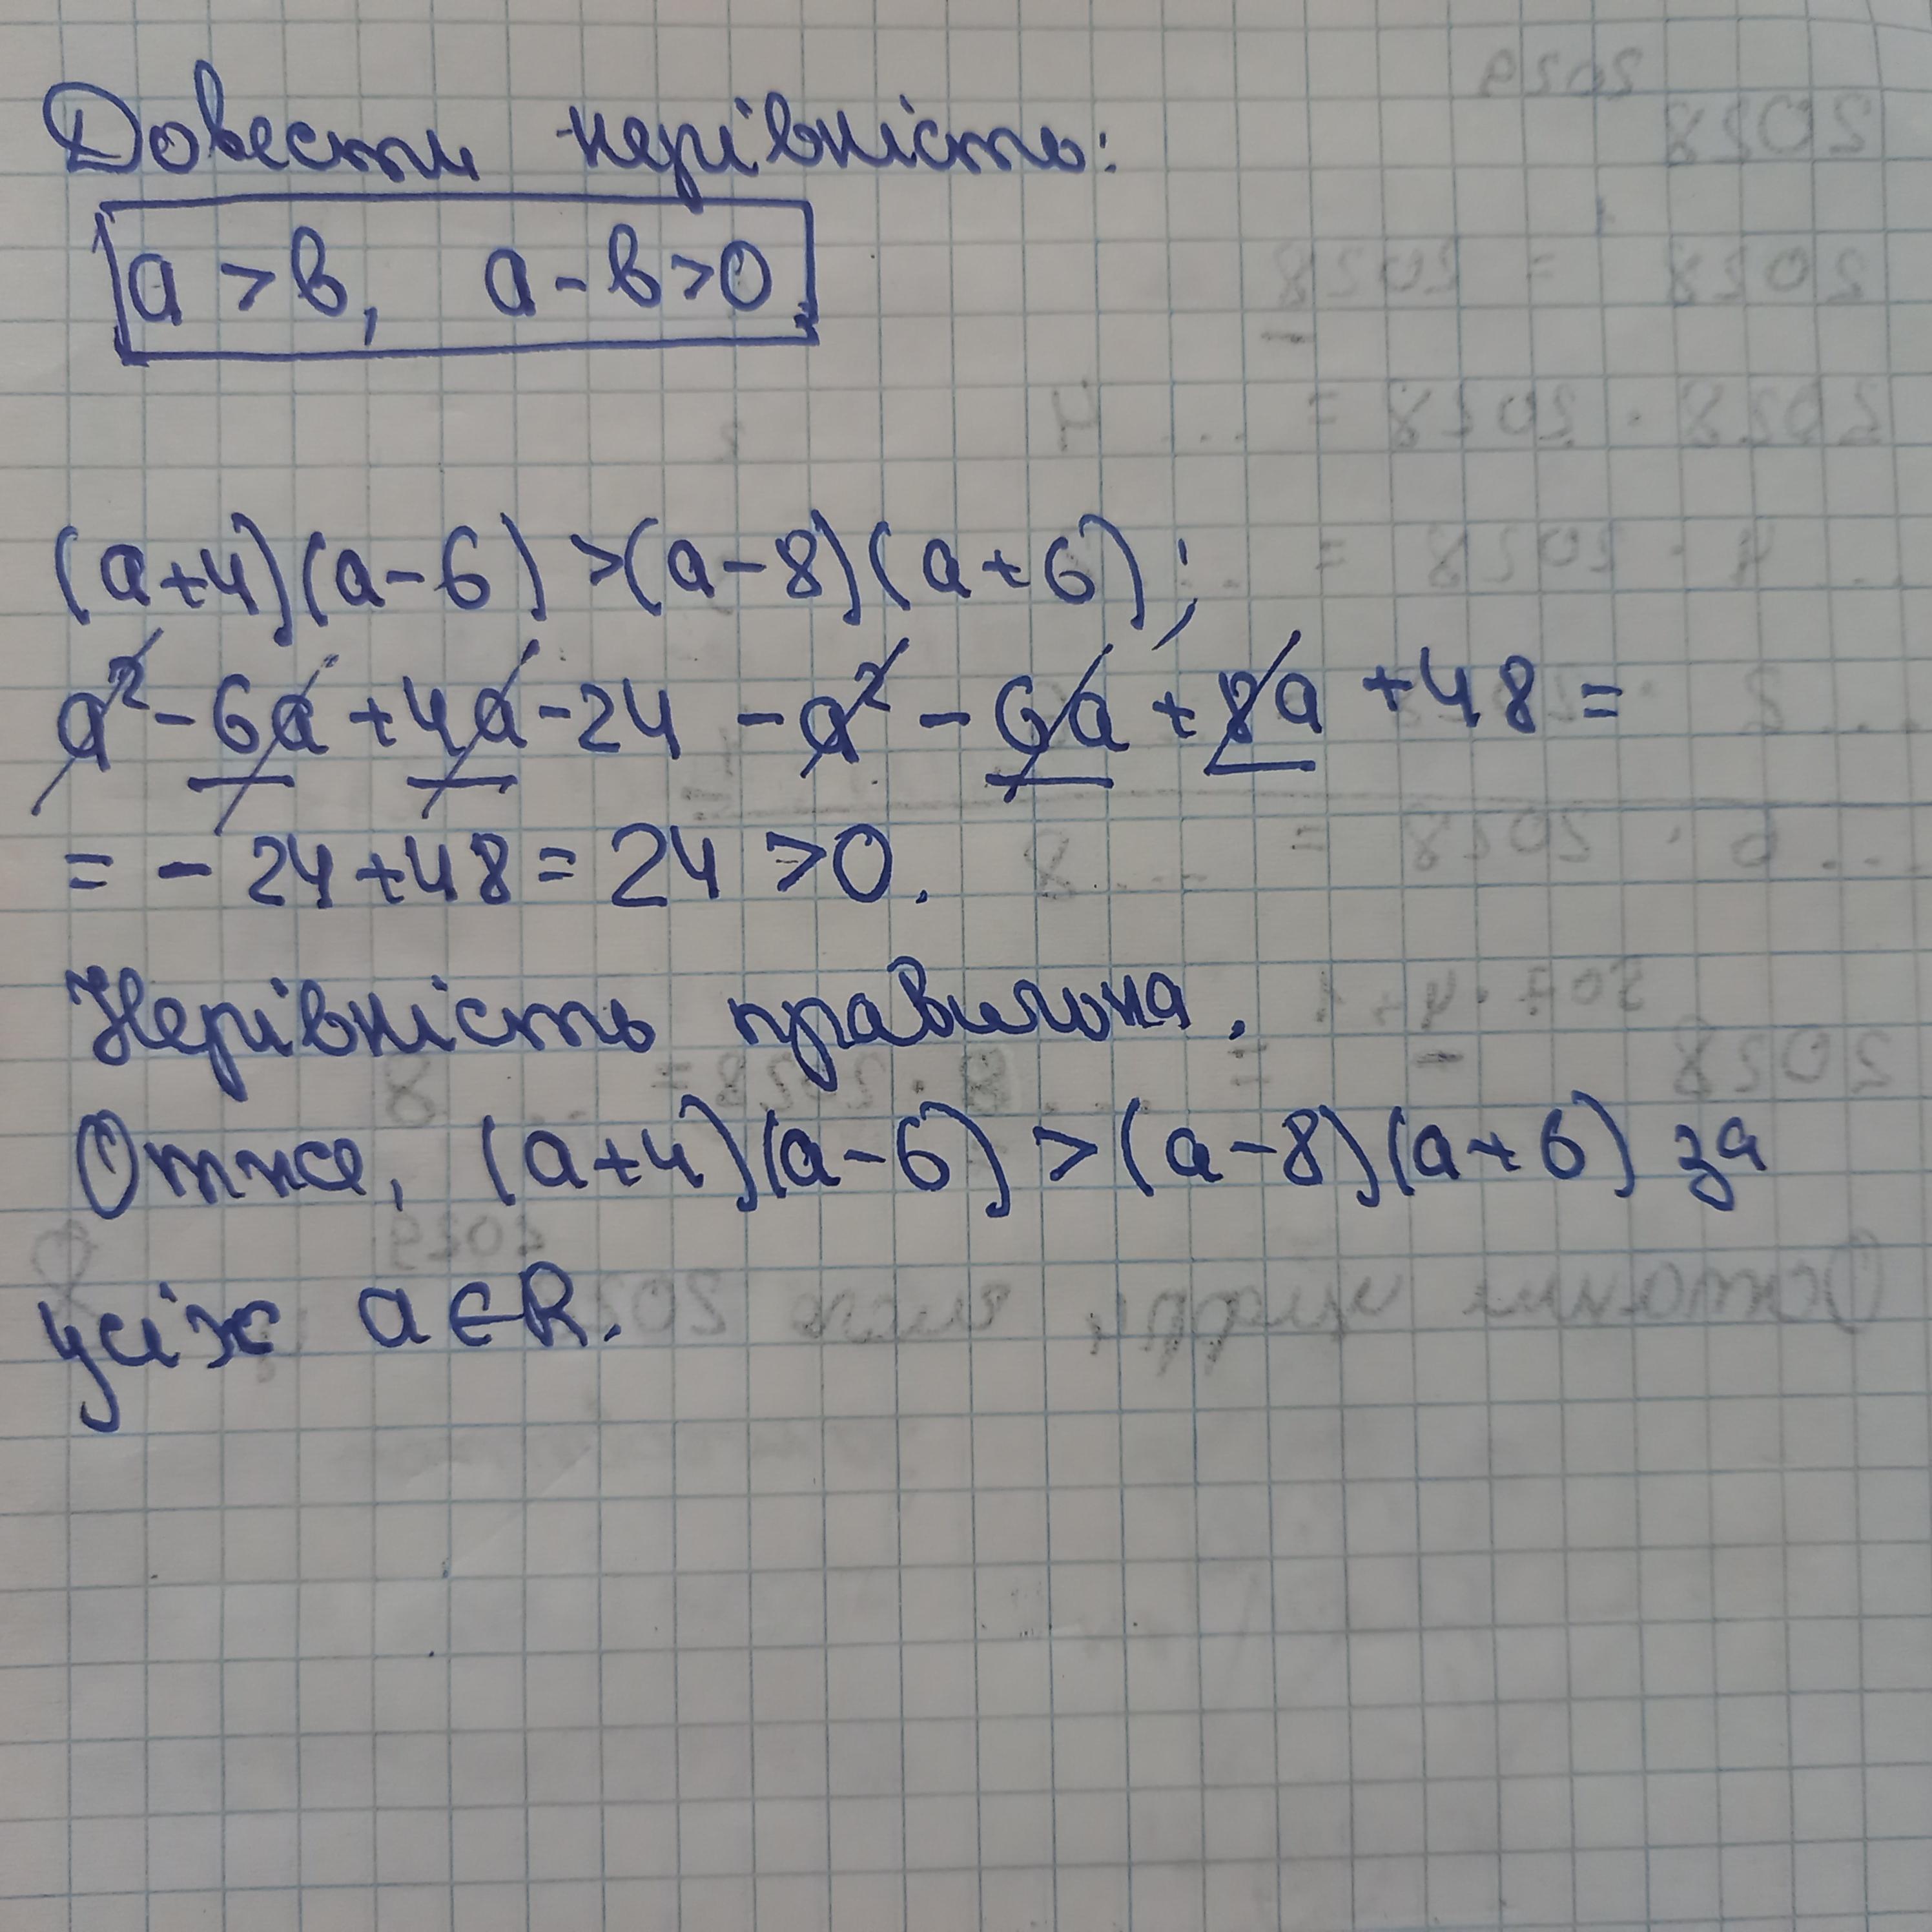 Довести нерівність:
a > b, a - b > 0
(a+4)(a-6) > (a-8)(a+6);
a² - 6a + 4a - 24 - a² - 6a + 8a + 48 =
= - 24 + 48 = 24 > 0.
Нерівність правильна.
Отже, (a+4)(a-6) > (a-8)(a+6) за
усіх a ∈ R.